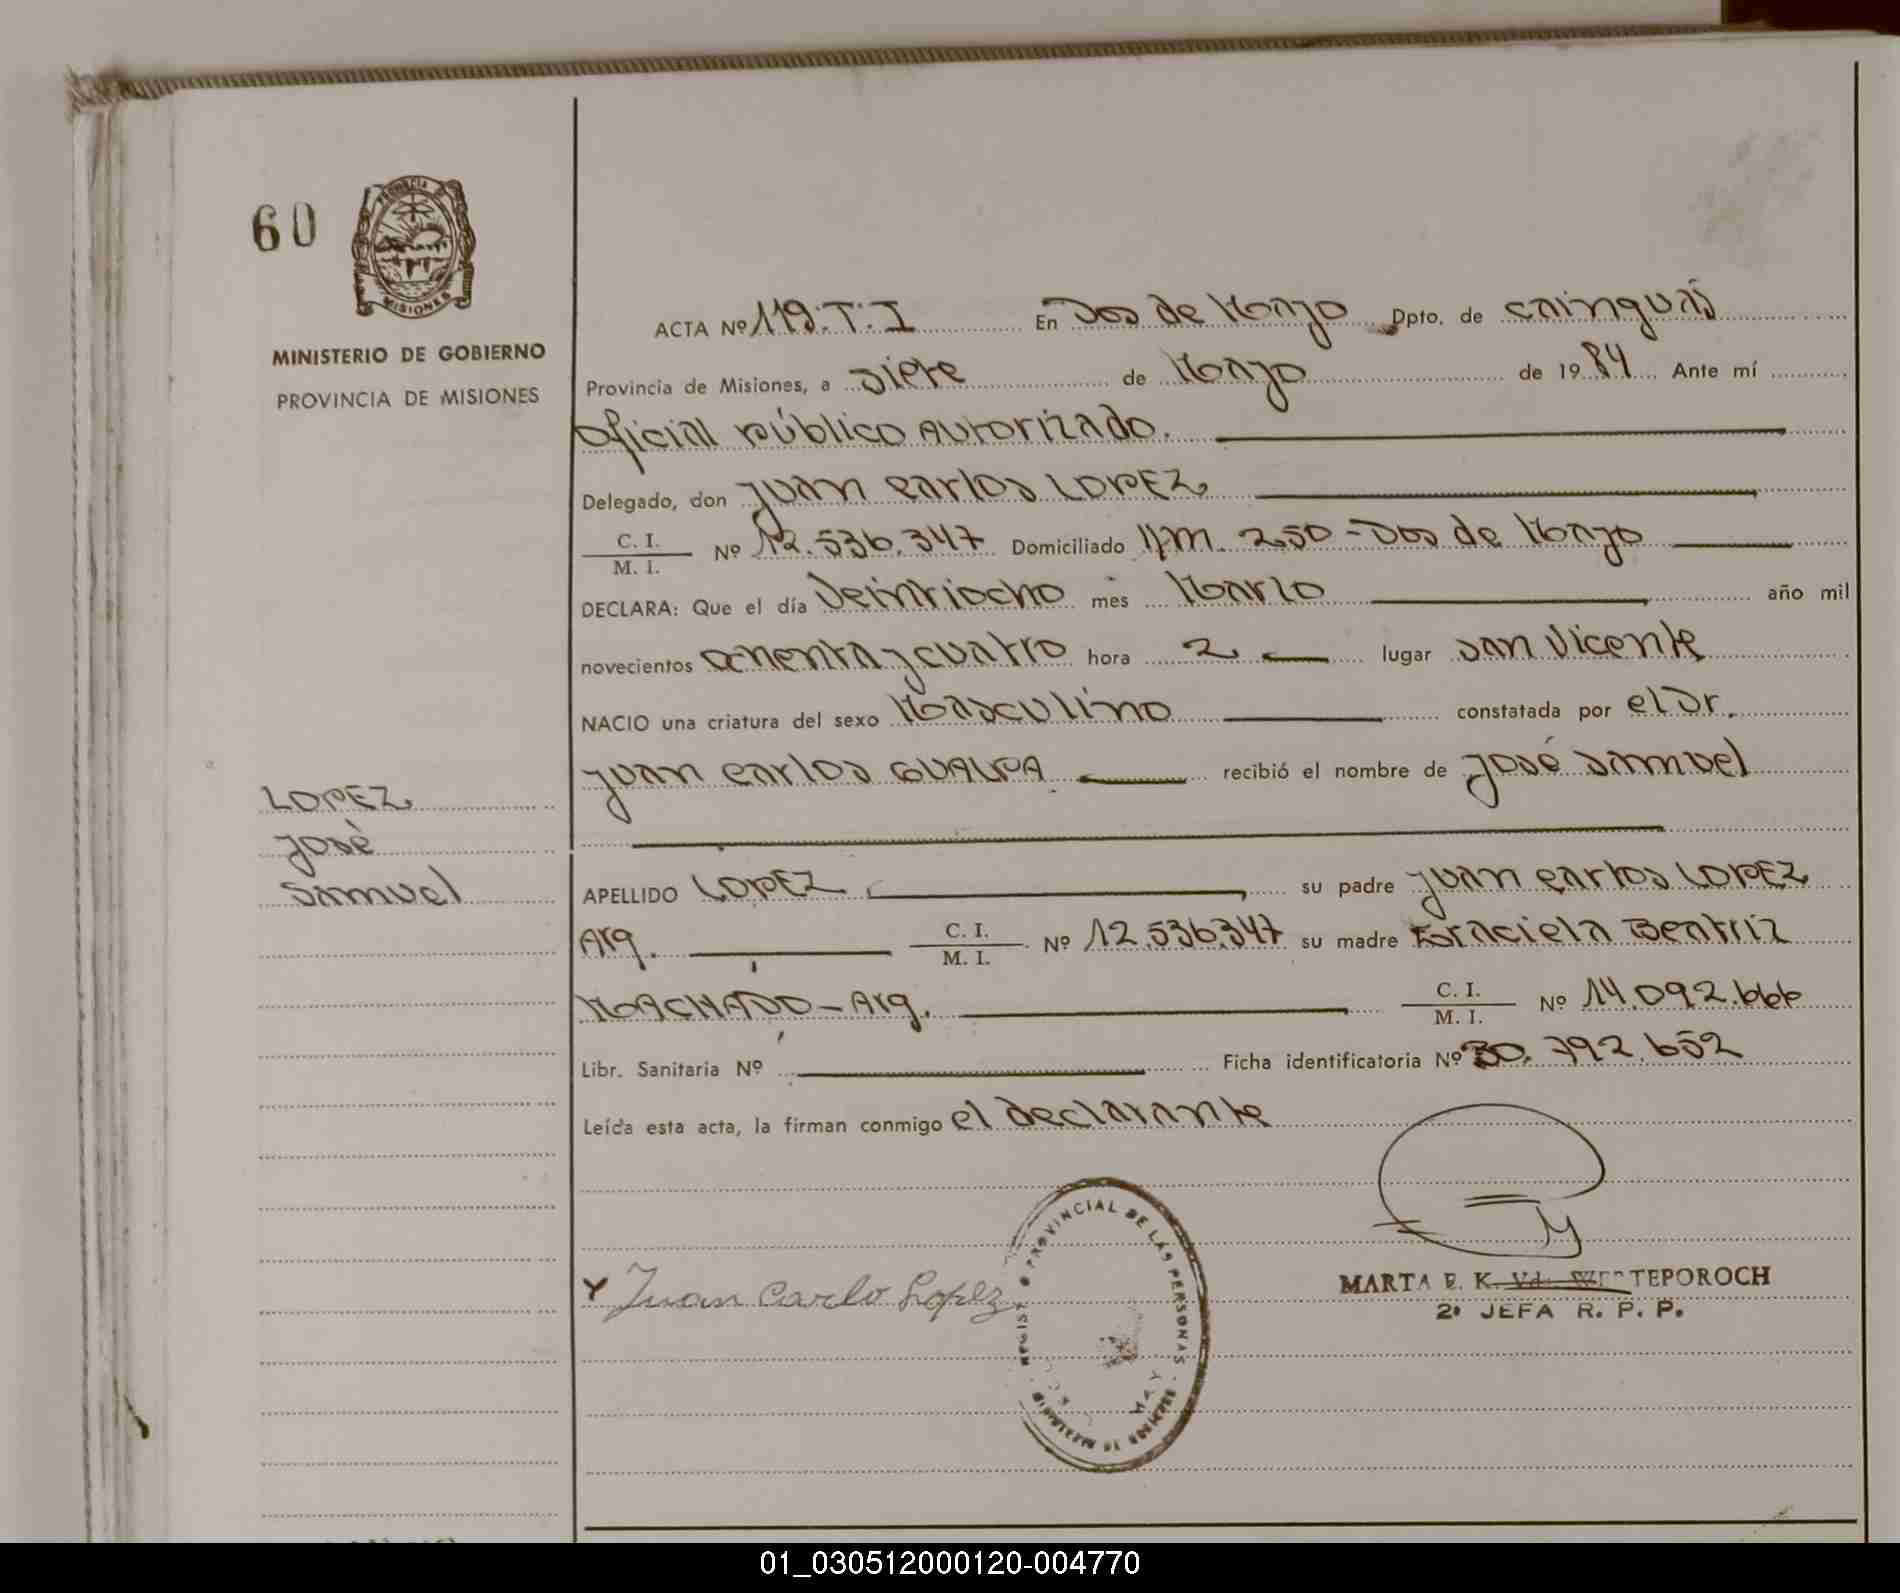 60
PROVINCIA
MISIONES
MINISTERIO DE GOBIERNO
PROVINCIA DE MISIONES
LOPEZ
José
Samuel
ACTA Nº 119.T.I En Dos de Mayo Dpto. de Cainguás
Provincia de Misiones, a siete de Mayo de 1984 Ante mí
Oficial Público Autorizado.
Delegado, don Juan Carlos LOPEZ
C. I.
M. I.
Nº 12.536.347 Domiciliado Km. 250 - Dos de Mayo
DECLARA: Que el día Veintiocho mes Marzo año mil
novecientos ochenta y cuatro hora 2 lugar San Vicente
NACIO una criatura del sexo Masculino constatada por el Dr.
Juan Carlos GUALPA recibió el nombre de José Samuel
APELLIDO LOPEZ su padre Juan Carlos LOPEZ
Arg. C. I.
M. I.
Nº 12.536.347 su madre Graciela Beatriz
MACHADO - Arg. C. I.
M. I.
Nº 14.092.666
Libr. Sanitaria Nº Ficha identificatoria Nº 30.792.652
Leída esta acta, la firman conmigo el declarante
Juan Carlo Lopez
PROVINCIAL DE LAS PERSONAS
MARTA E. K. TEPOROCH
2º JEFA R. P. P.
01_030512000120-004770